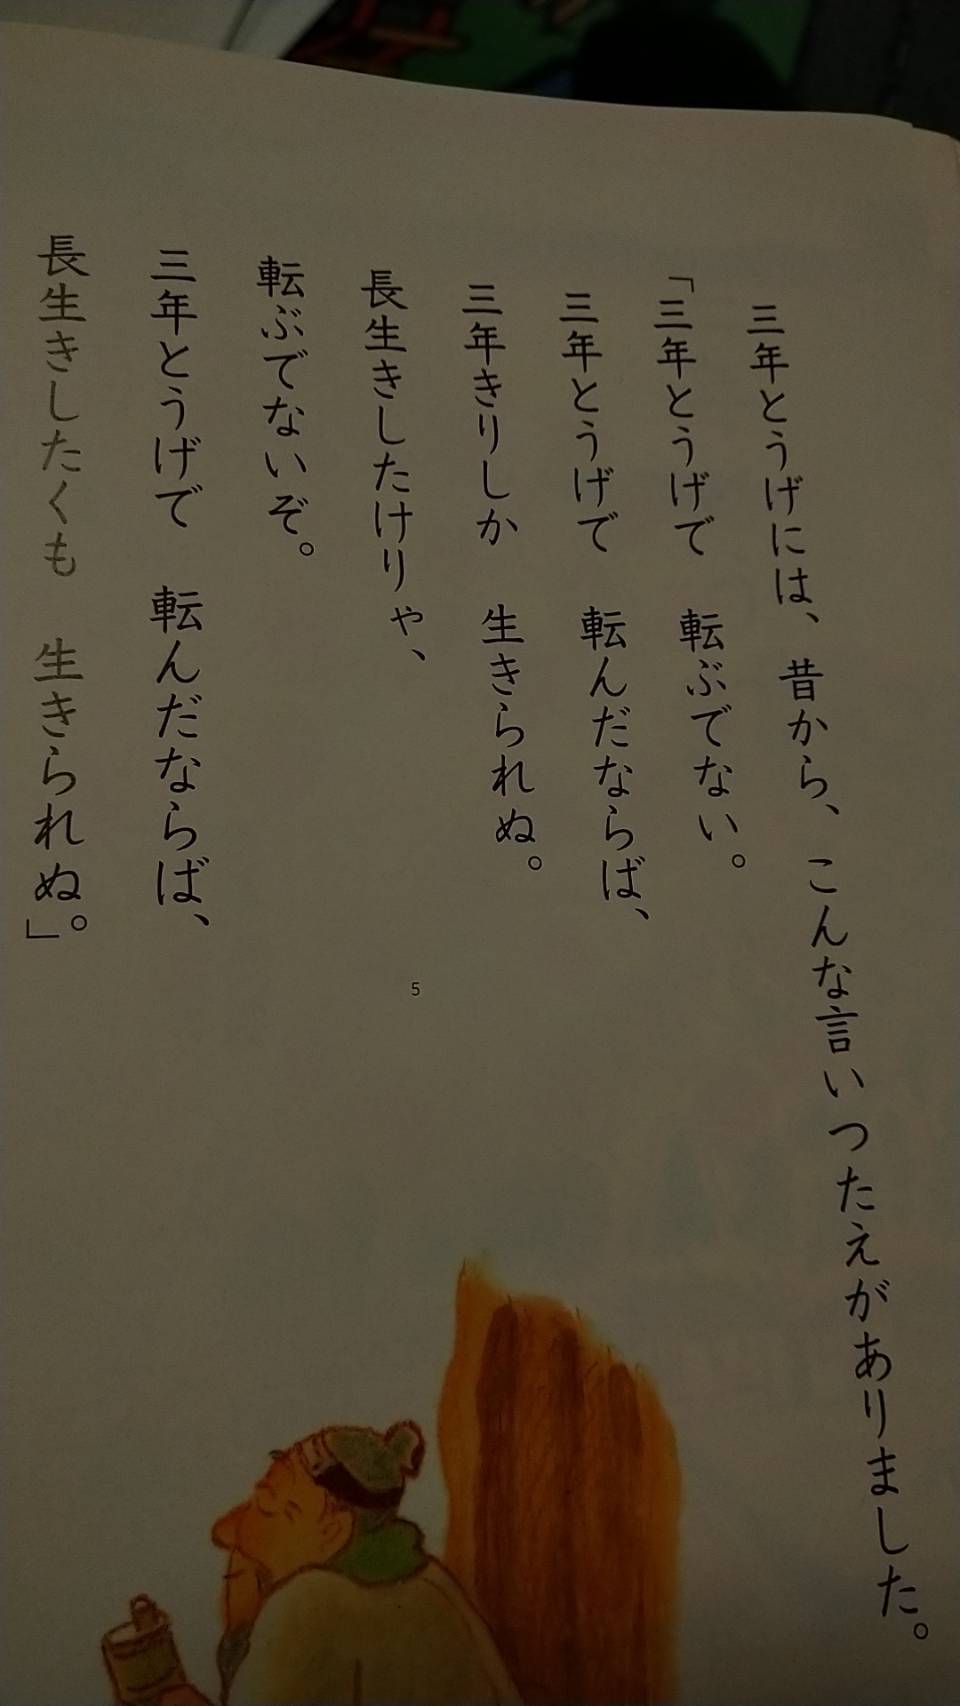 三年とうげには、昔から、こんな言いつたえがありました。
「三年とうげで　転ぶでない。
三年とうげで　転んだならば、
三年きりしか　生きられぬ。
長生きしたけりゃ、
転ぶでないぞ。
三年とうげで　転んだならば、
長生きしたくも　生きられぬ。」
5